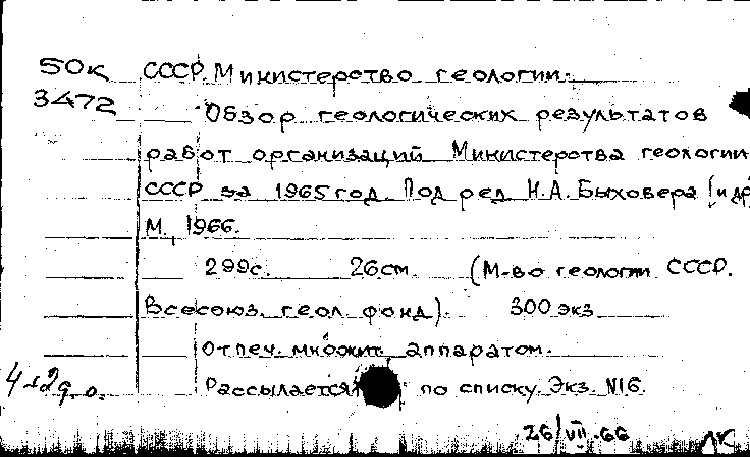 50к СССР. Министерство геологии.
3472 Обзор геологических результатов
работ организаций Министерства геологии
СССР за 1965 год. Под ред. Н.А. Быховера [и др
М., 1966.
299с. 26см. (М-во геологии СССР.
Всесоюз. геол. фонд). 300 экз.
Отпеч. множит. аппаратом.
Рассылается по списку. Экз. №16.
26/VII-66